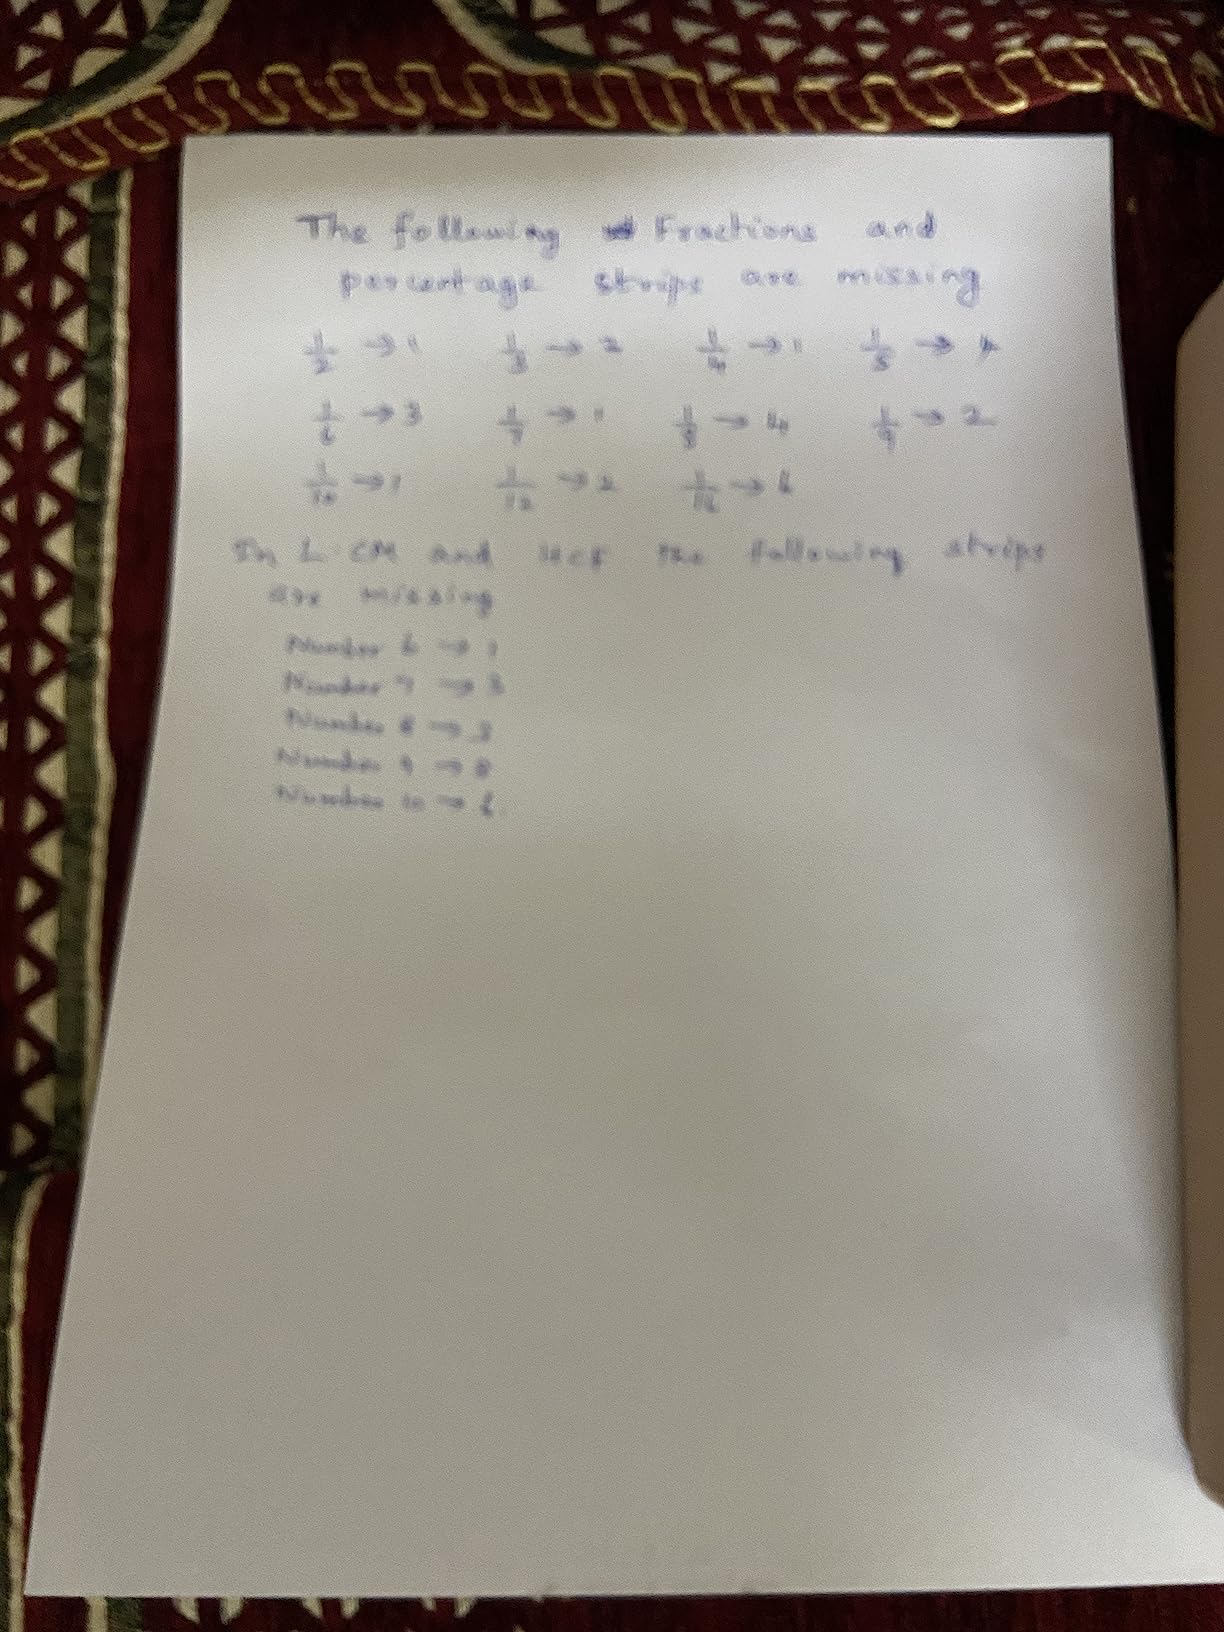 The following Fractions and
percentage strips are missing
1/2 → 1 1/3 → 2 1/4 → 1 1/5 →
1/6 → 3 1/7 → 1 1/8 → 4 1/9 → 2
1/10 → 1 1/12 → 2 1/16 → 6
In L.CM and HCF the following strips
are missing
Number 6 → 1
Number 7 → 3
Number 8 → 3
Number 9 → 8
Number 10 → 6